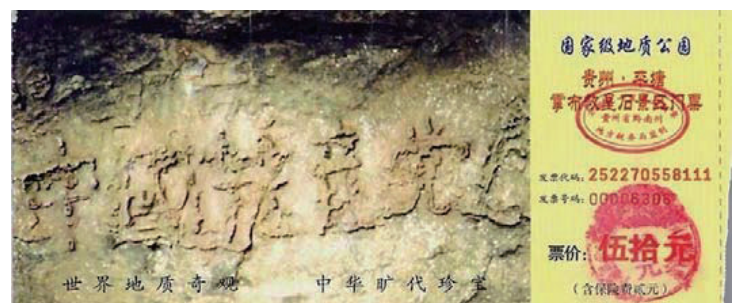 中國共产党亡
世界地质奇观 中华旷代珍宝
国家级地质公园
贵州·平塘
掌布救星石景区门票
贵州省黔南州
地方税务局监制
发票代码: 252270558111
发票号码: 00006306
票价: 伍拾元
（含保险费贰元）